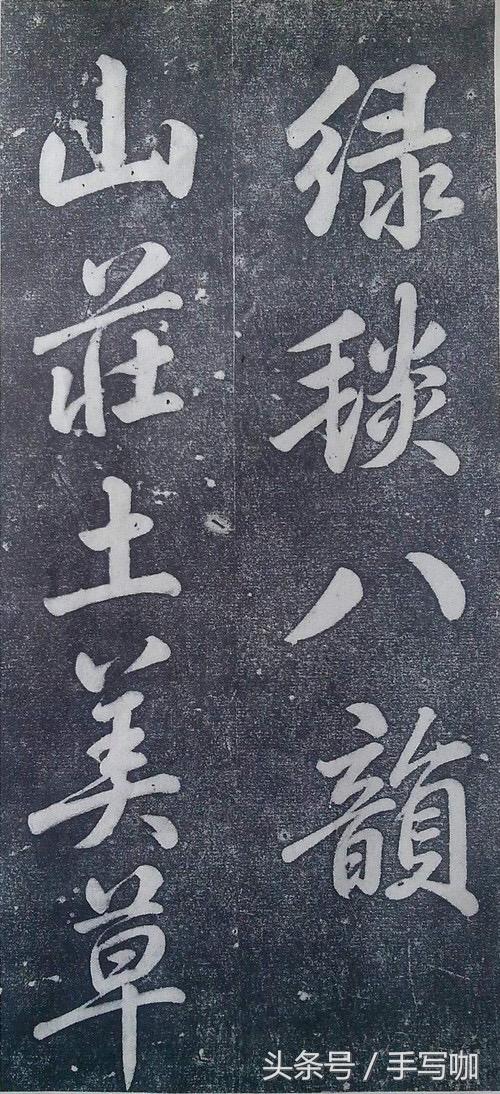 绿毯八韻
山莊土美草
头条号 / 手写咖